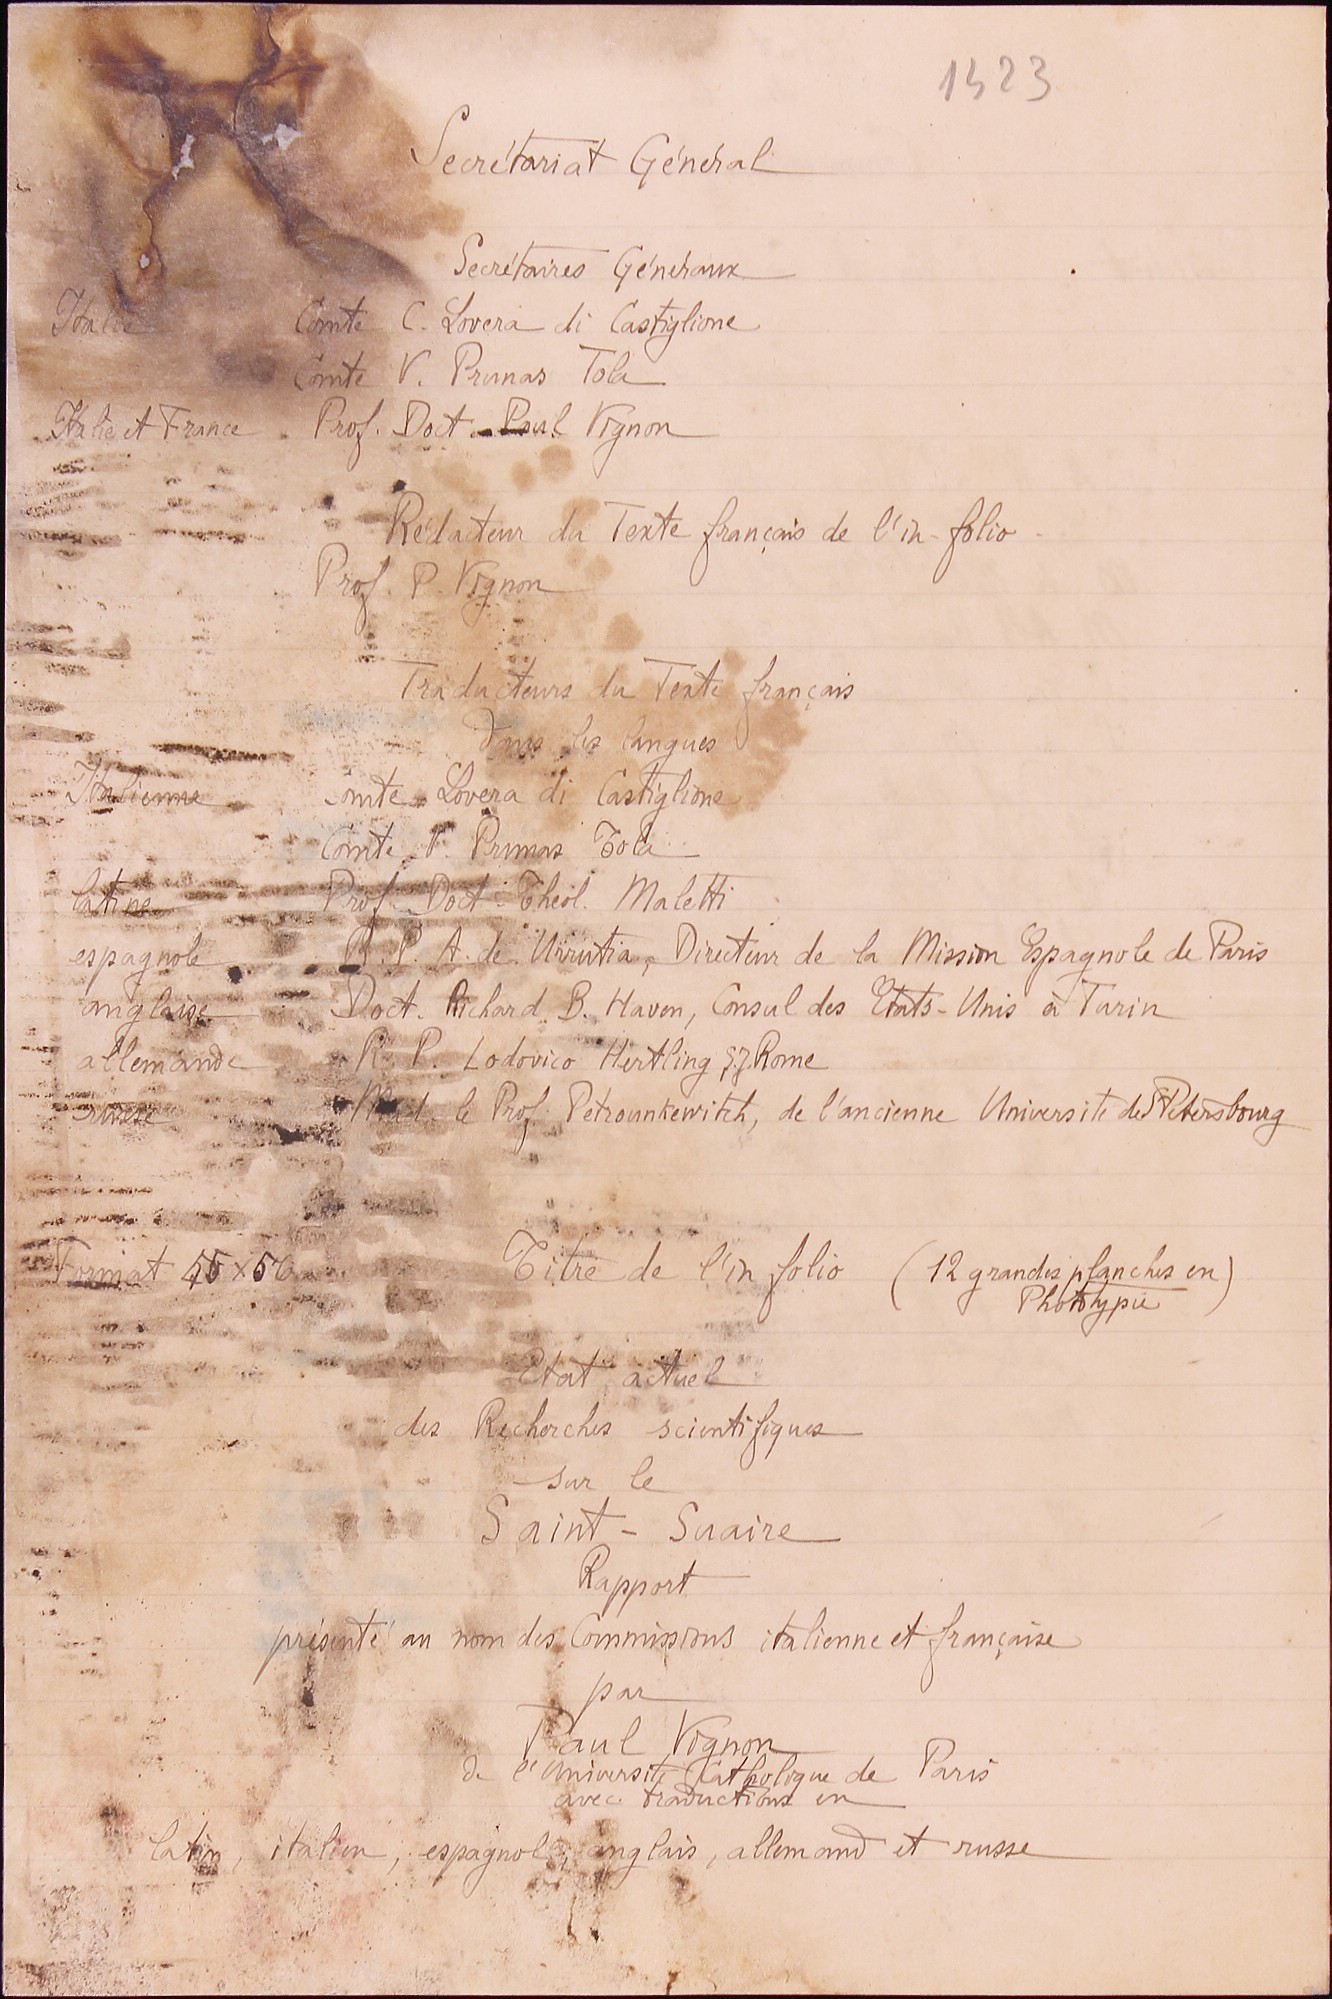 1423
Secrétariat Général
Secrétaires Généraux
Italie Comte C. Lovera di Castiglione
Comte V. Prunas Tola
Italie et France Prof. Doct. Paul Vignon
Rédacteur du Texte français de l'in-folio
Prof. P. Vignon
Traducteurs du Texte français
dans les langues
Italienne Comte Lovera di Castiglione
Comte V. Prunas Tola
latine Prof. Doct. Théol. Maletti
espagnole R. P. A. de Urrutia, Directeur de la Mission Espagnole de Paris
anglaise Doct. Richard B. Haven, Consul des Etats-Unis à Turin
allemande R. P. Lodovico Hertling S.J. Rome
russe Mad. le Prof. Petrounkewitch, de l'ancienne Université de St Petersbourg
Format 45 x Titre de l'in folio (12 grandes planches en
Phototypie)
Etat actuel
des Recherches scientifiques
sur le
Saint-Suaire
Rapport
présenté au nom des Commissions italienne et française
par
Paul Vignon
de l'Université Catholique de Paris
avec traductions en
latin, italien, espagnol, anglais, allemand et russe